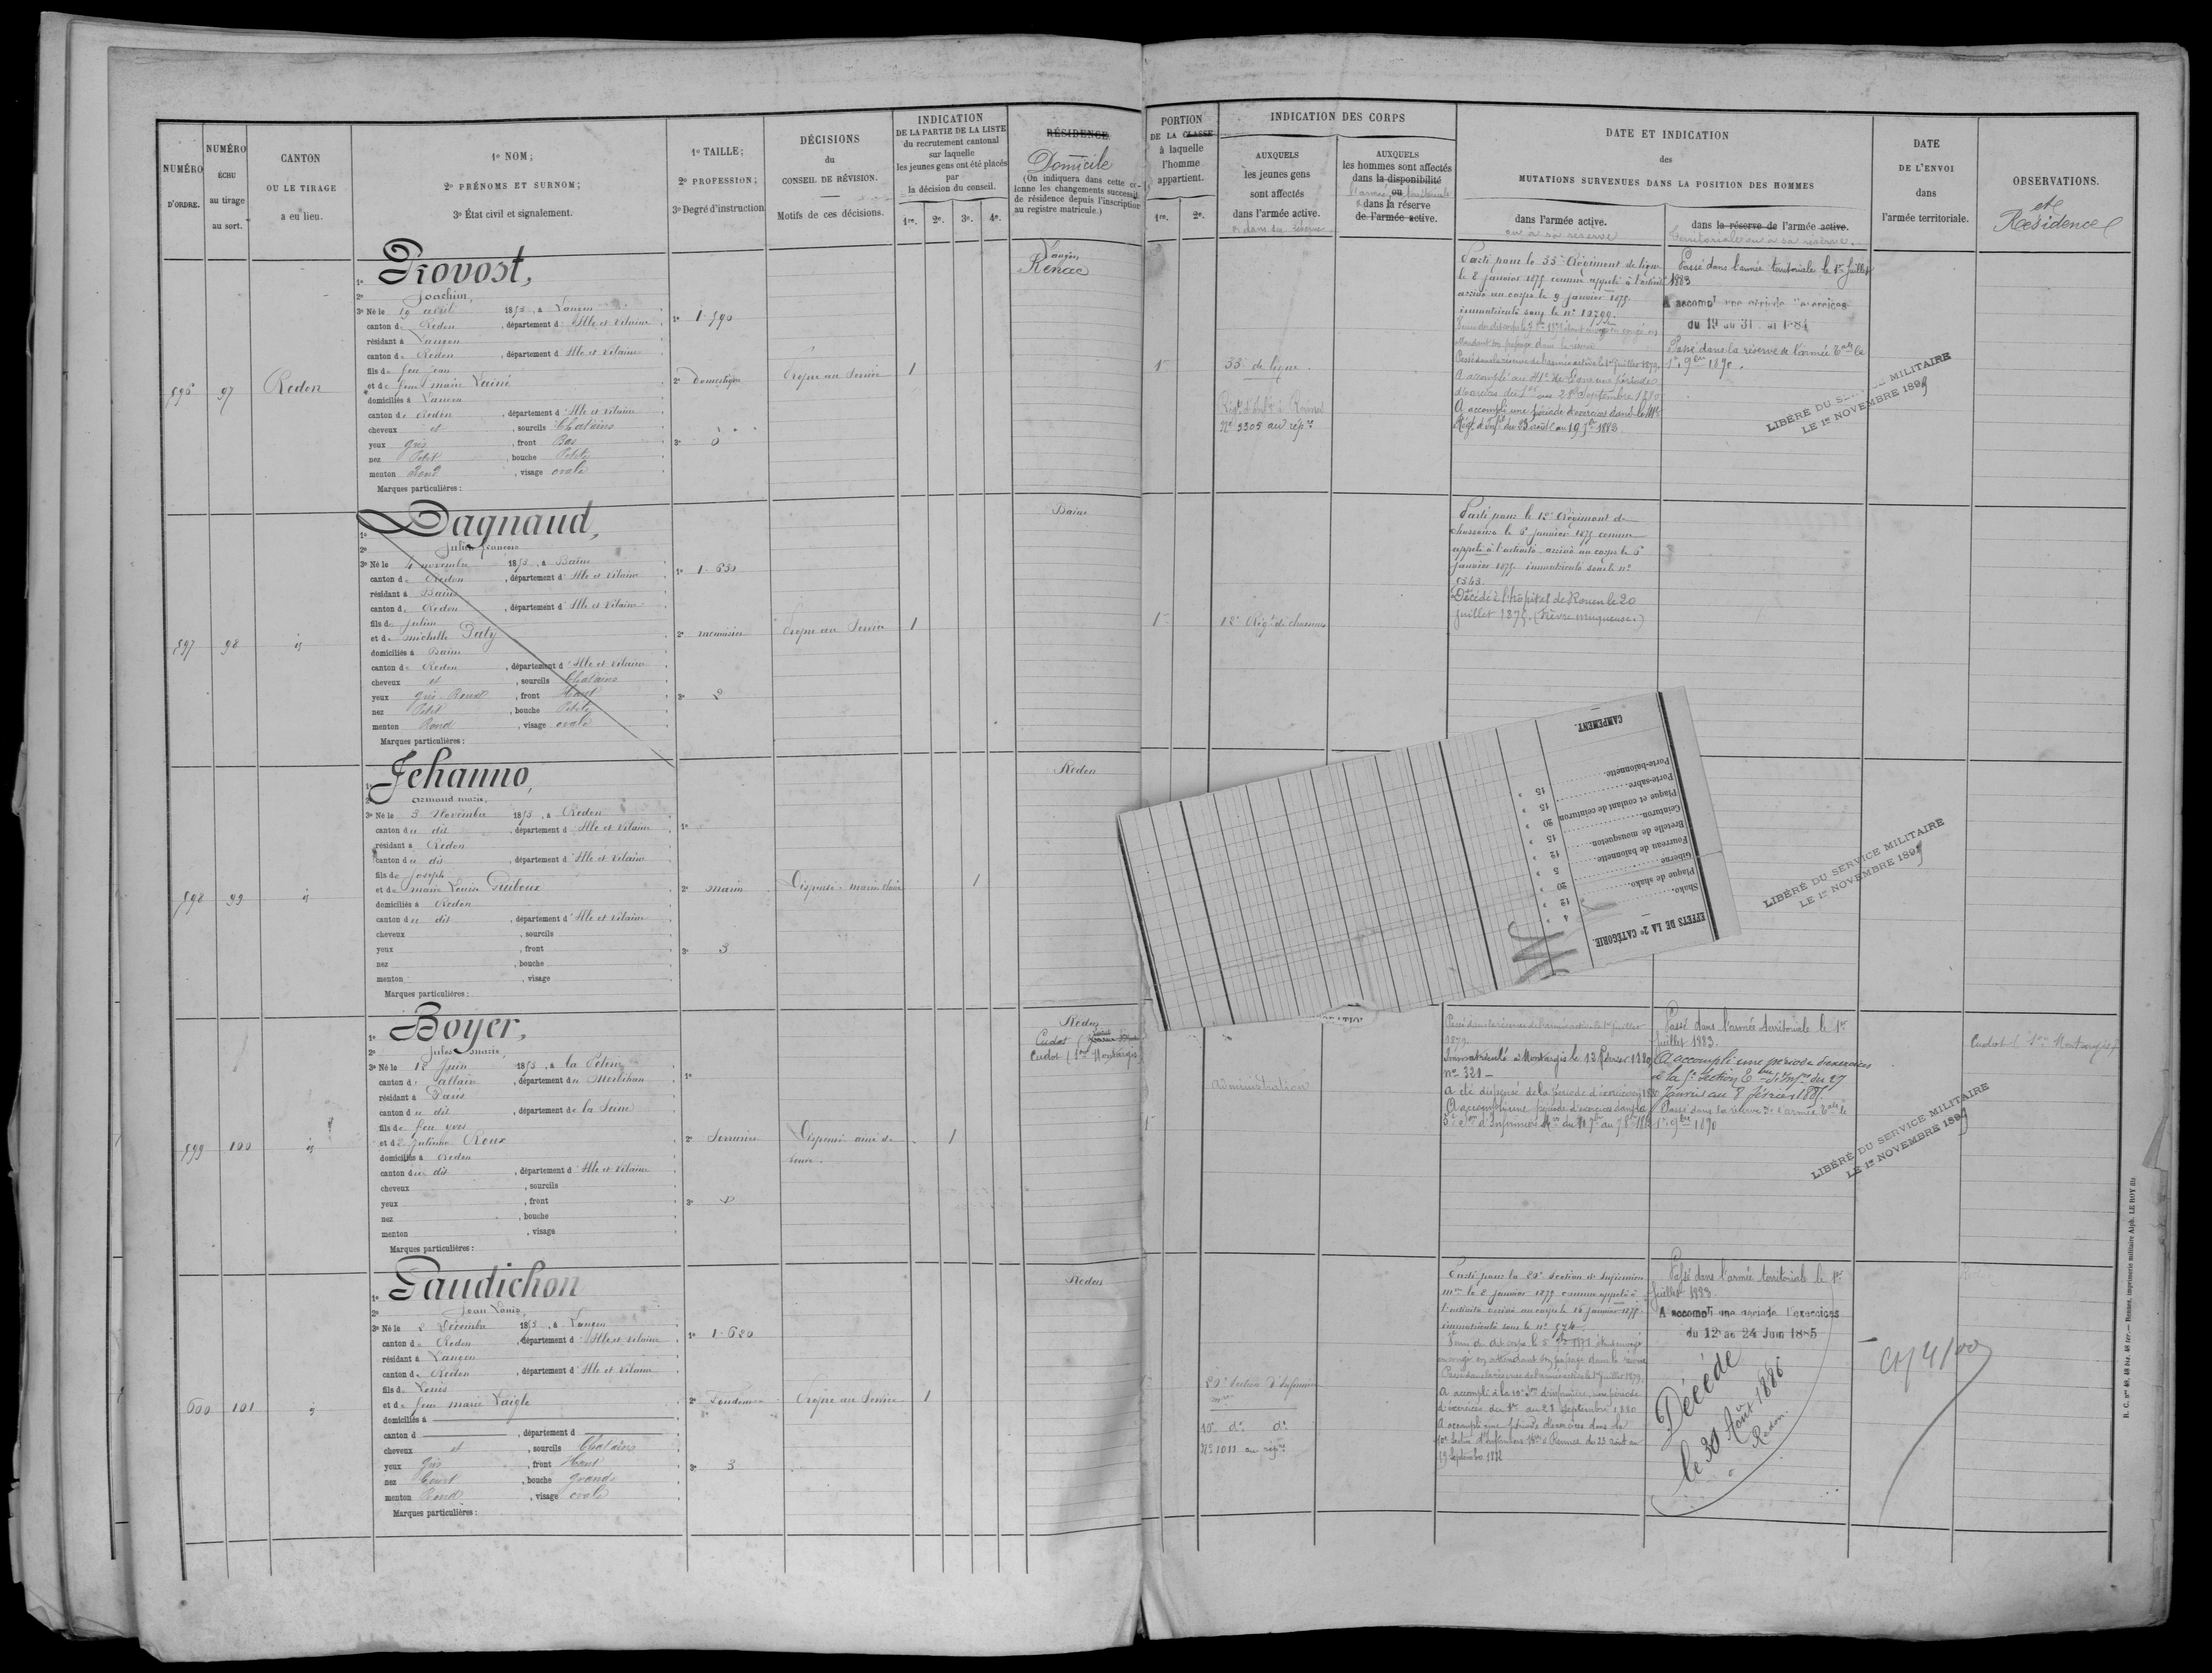 NUMÉRO
D'ORDRE.
NUMÉRO
ÉCHU
au tirage
au sort.
CANTON
OU LE TIRAGE
a eu lieu.
1º NOM;
2º PRÉNOMS ET SURNOM;
3º État civil et signalement.
1º TAILLE;
2º PROFESSION;
3º Degré d'instruction
DÉCISIONS
du
CONSEIL DE RÉVISION.
Motifs de ces décisions.
INDICATION
DE LA PARTIE DE LA LISTE
du recrutement cantonal
sur laquelle
les jeunes gens ont été placés
par
la décision du conseil.
1re. 2e. 3e. 4e.
RÉSIDENCE
Domicile
(On indiquera dans cette co-
lonne les changements successifs
de résidence depuis l'inscription
au registre matricule.)
PORTION
DE LA CLASSE
à laquelle
l'homme
appartient.
1re. 2e.
INDICATION DES CORPS
AUXQUELS
les jeunes gens
sont affectés
dans l'armée active.
AUXQUELS
les hommes sont affectés
dans la disponibilité
ou
dans la réserve
de l'armée active.
DATE ET INDICATION
des
MUTATIONS SURVENUES DANS LA POSITION DES HOMMES
dans l'armée active.
ou à sa réserve
dans la réserve de l'armée active.
territoriale ou à sa réserve.
DATE
DE L'ENVOI
dans
l'armée territoriale.
OBSERVATIONS.
et
Résidence
596
97
Redon
1º Provost,
2º Joachim,
3º Né le 19 avril 1853, à Langon
canton de Redon, département d'Ille et Vilaine
résidant à Langon
canton de Redon, département d'Ille et Vilaine
fils de feu Jean
et de feue Marie Lainé
domiciliés à Langon
canton de Redon, département d'Ille et Vilaine
cheveux et, sourcils Chatains
yeux gris, front Bas
nez Petit, bouche Petite
menton Rond, visage ovale
Marques particulières:
1º 1.590
2º Domestique
3º 0
Propre au Service
1
Langon
Renac
1
33e de ligne
Nº 3305 au rép.re
Parti pour le 33e Régiment de ligne
le 8 janvier 1875 comme appelé à l'activité
arrivé au corps le 9 janvier 1875.
immatriculé sous le nº 10799.
attendant son passage dans la réserve
Passé dans la réserve de l'armée active le 1er juillet 1879.
A accompli une période d'exercices dans le
Passé dans l'armée territoriale le 1er Juillet
1883
A accompli une période d'exercices
du 19 au 31
Passé dans la réserve de l'armée Tale le
1er 9bre 1890.
LIBÉRÉ DU SERVICE MILITAIRE
LE 1er NOVEMBRE 1899
597
98
id
1º Dagnaud,
2º Julien François
3º Né le 4 novembre 1853, à Bains
canton de Redon, département d'Ille et Vilaine
résidant à Bains
canton de Redon, département d'Ille et Vilaine
fils de Julien
et de Michelle Paty
domiciliés à Bains
canton de Redon, département d'Ille et Vilaine
cheveux et, sourcils Chatains
yeux gris, front Haut
nez Petit, bouche Petite
menton Rond, visage ovale
Marques particulières:
1º 1.630
2º menuisier
3º 2
Propre au Service
1
Bains
1
12e Régt de chasseurs
Parti pour le 12e Régiment de
chasseurs le 6 janvier 1875 comme
appelé à l'activité arrivé au corps le 6
janvier 1875 immatriculé sous le nº
Décédé à l'hôpital de Rouen le 20
juillet 1875. (Fièvre muqueuse.)
598
99
id
1º Jehanno,
2º Armand Marie,
3º Né le 3 Novembre 1853, à Redon
canton du dit, département d'Ille et Vilaine
résidant à Redon
canton du dit, département d'Ille et Vilaine
fils de Joseph
et de Marie Louise Duboux
domiciliés à Redon
canton du dit, département d'Ille et Vilaine
cheveux, sourcils
yeux, front
nez, bouche
menton, visage
Marques particulières:
1º
2º marin
3º 3
Dispensé marin
1
Redon
CAMPEMENT.
Porte-baïonnette
Porte-sabre 15
Plaque et coulant de ceinturon 15
Ceinturon 20
Bretelle de mousqueton 15
Fourreau de baïonnette 12
Giberne 5
Plaque de shako 20
Shako 12
4
EFFETS DE LA 2e CATÉGORIE.
LIBÉRÉ DU SERVICE MILITAIRE
LE 1er NOVEMBRE 1899
599
100
id
1º Boyer,
2º Jules Marie,
3º Né le 12 Juin 1853, à la
canton d'allaire, département du Morbihan
résidant à Paris
canton du dit, département de la Seine
fils de feu Yves
et de Julienne Roux
domiciliés à Redon
canton du dit, département d'Ille et Vilaine
cheveux, sourcils
yeux, front
nez, bouche
menton, visage
Marques particulières:
1º
2º Serrurier
3º
Dispensé ainé de
veuve.
1
Redon
Cudot
Cudot (Son Montargis
administration
Passé dans la réserve de l'armée active le 1er juillet
1879.
Immatriculé à Montargis le 13 février 1880
nº 321
a été dispensé de la période d'exercices en 1880
A accompli une période d'exercices
Passé dans l'armée territoriale le 1er
Juillet 1883.
A accompli une période d'exercices
à la 5e Section Tle d'Infers du 27
Janvier au 8 février 1885.
Passé dans la réserve de l'armée Tale le
1er 9bre 1890
LIBÉRÉ DU SERVICE MILITAIRE
LE 1er NOVEMBRE 1899
Cudot (Son Montargis)
600
101
id
1º Gaudichon
2º Jean Louis
3º Né le 2 Décembre 1853, à Langon
canton de Redon, département d'Ille et Vilaine
résidant à Langon
canton de Redon, département d'Ille et Vilaine
fils de Louis
et de feue Marie Laigle
domiciliés à
canton d, département d
cheveux et, sourcils Chatains
yeux gris, front Haut
nez Court, bouche grande
menton Rond, visage ovale
Marques particulières:
1º 1.620
2º
3º 3
Propre au Service
1
Redon
20e Section d'infirmiers
10e dº dº
Nº 1011 au rép.re
Parti pour la 20e Section d'infirmiers
mres le 8 janvier 1875 comme appelé à
l'activité arrivé au corps le 16 janvier 1875
immatriculé sous le nº 574.
Passé dans la réserve de l'armée active le 1er juillet 1879.
A accompli à la 10e Son d'infirmiers, une période
d'exercices du 1er au 28 septembre 1880
A accompli une période d'exercices dans la
10e Section d'Infirmiers Mres à Rennes du 23 août au
19 Septembre 1882
Passé dans l'armée territoriale le 1er
Juillet 1883.
A accompli une période d'exercices
du 12 au 24 Juin 1885
Décédé
le 30 Août 1886
Redon.
R. C. nos 48, 48 bis, 48 ter. — Rennes, imprimerie militaire Alph. LE ROY fils